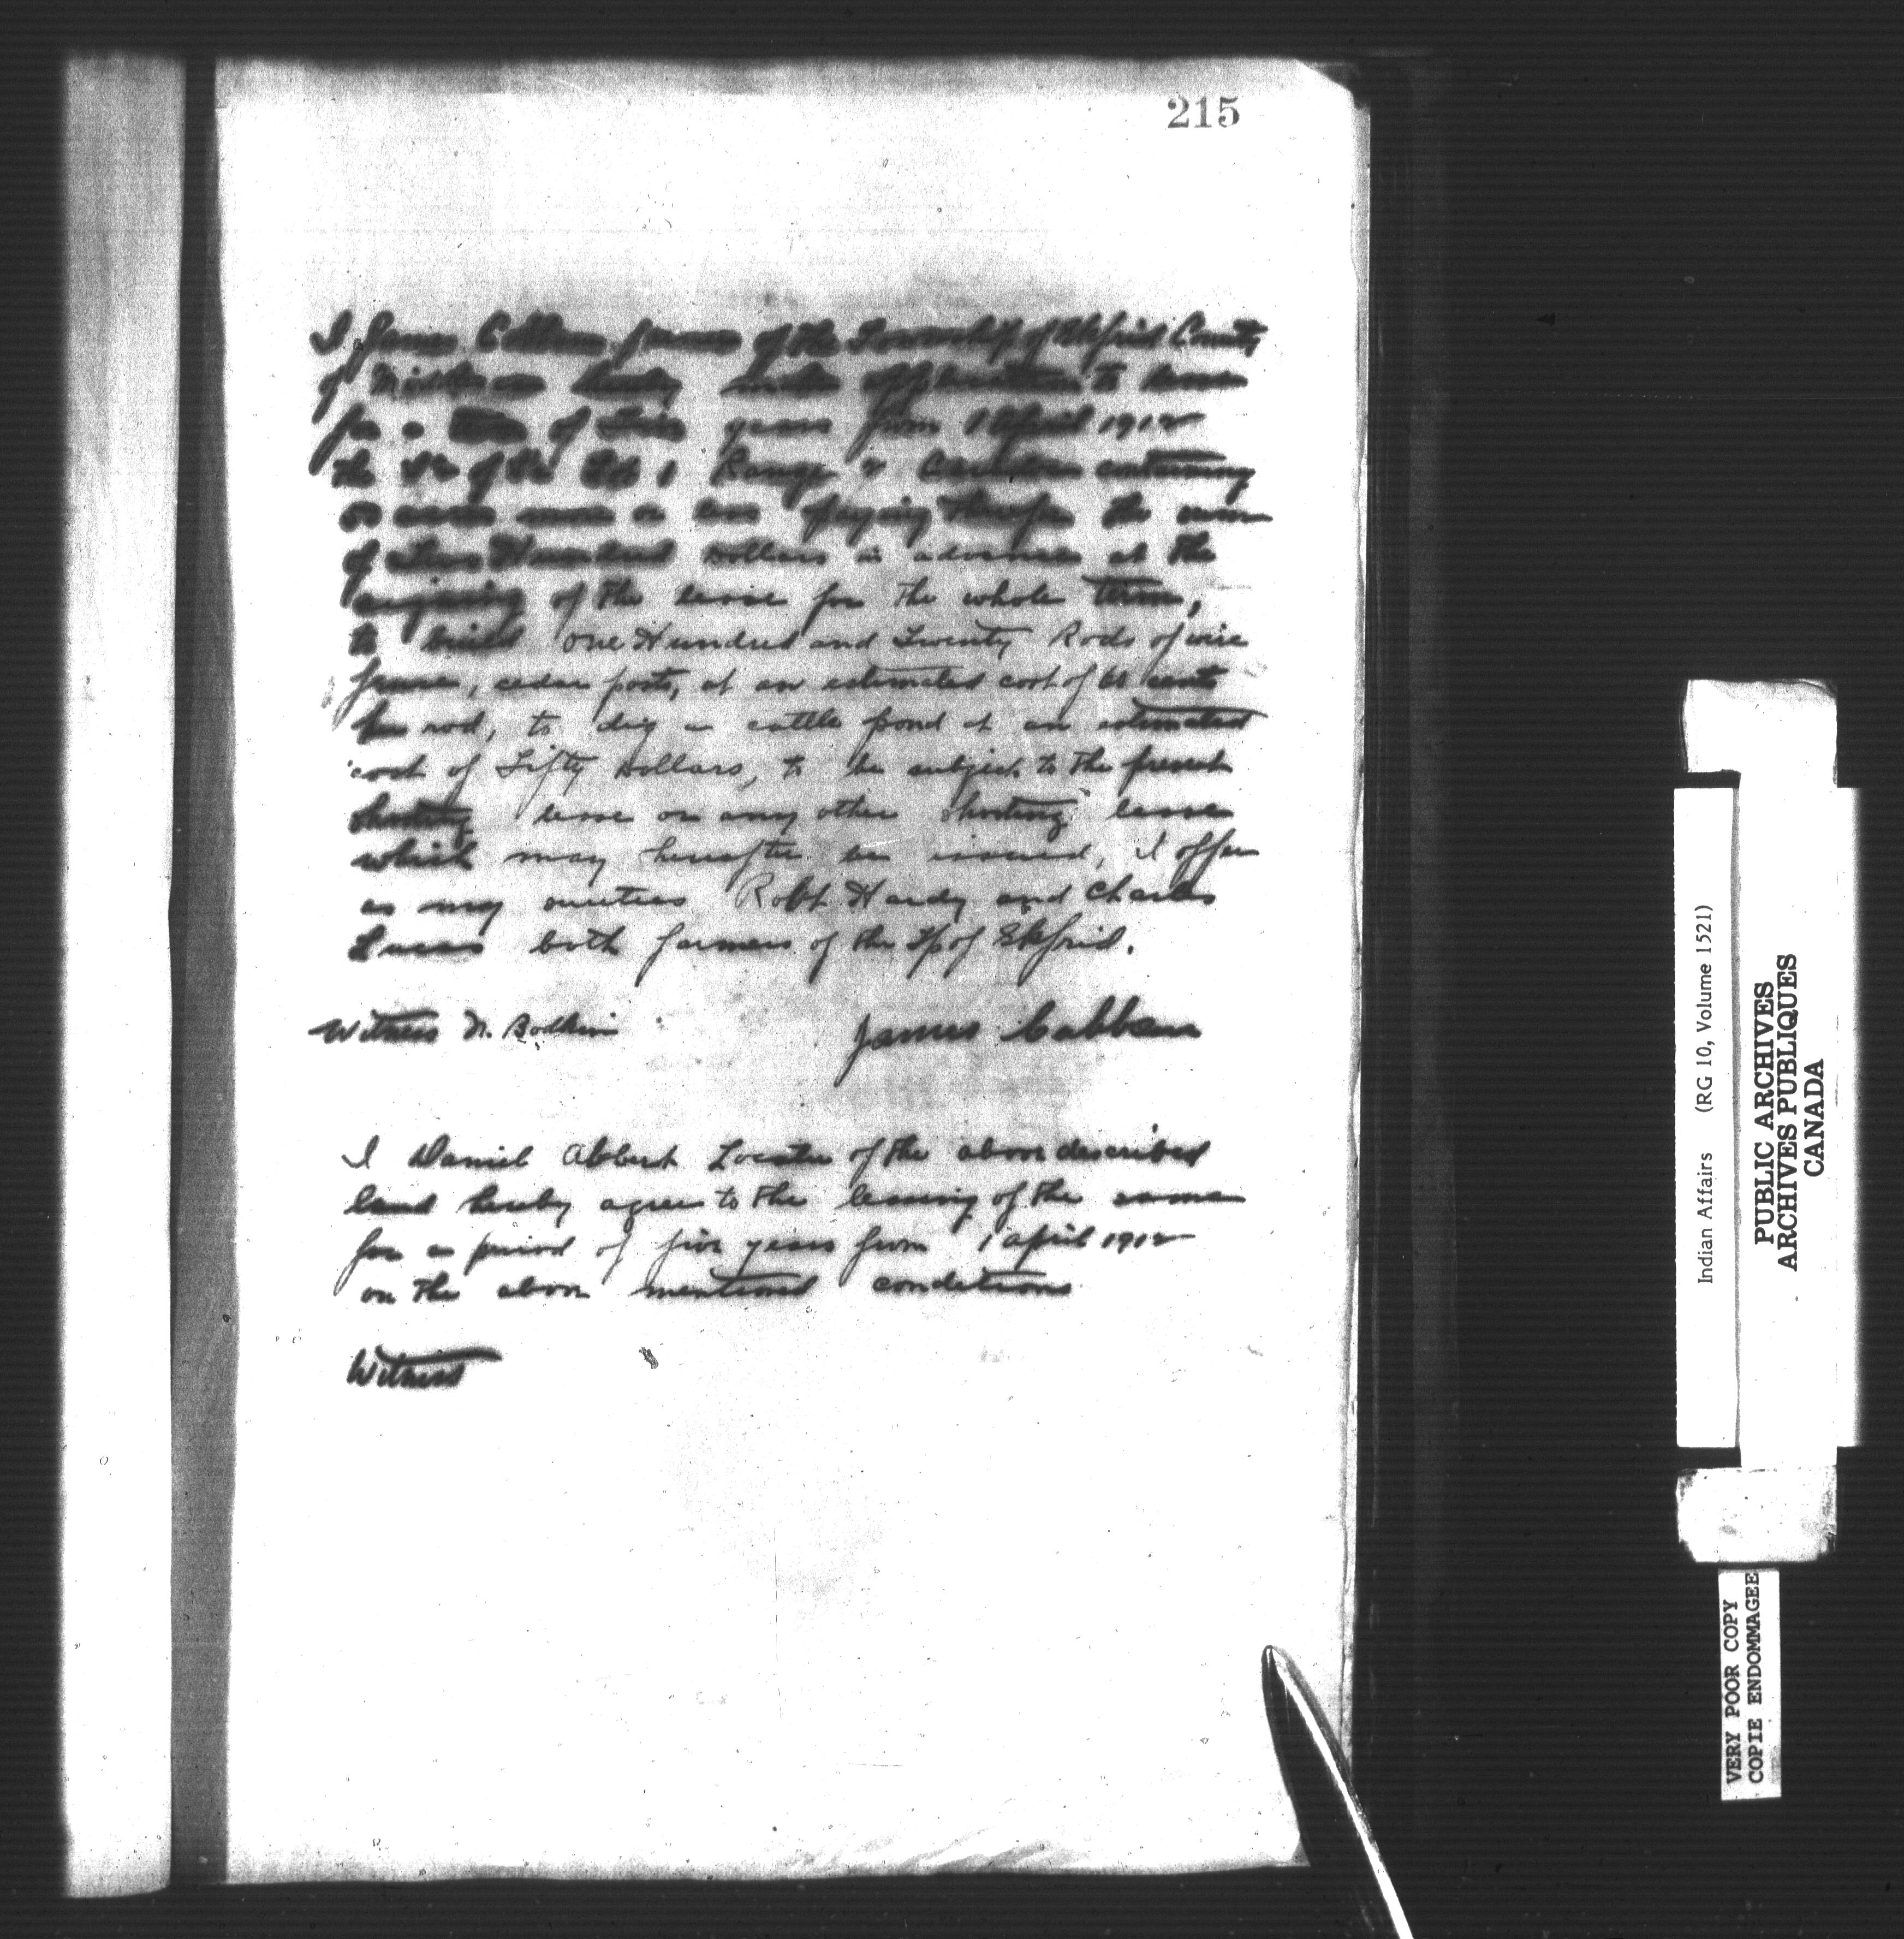 215
I James Cobban farmer of the Township of Ekfrid County
of Middlesex hereby make application to lease
for a term of five years from 1 April 1912
the of Lot 1 Range Caradoc containing
50 acres more or less paying therefor the sum
of Two Hundred Dollars in advance at the
signing of the lease for the whole term,
to build One Hundred and Twenty Rods of wire
fence, cedar posts, at an estimated cost of 60 cents
per rod, to dig a cattle pond at an estimated
cost of Fifty Dollars, to be subject to the present
shooting lease or any other shooting lease
which may hereafter be issued, I offer
as my sureties Robt Hardy and Charles
Lucas both farmers of the Tp of Ekfrid.
Witness N. Bodkin James Cobban
I Daniel Abbert Locatee of the above described
land hereby agree to the leasing of the same
for a period of five years from 1 April 1912
on the above mentioned conditions
Witness
Indian Affairs (RG 10, Volume 1521)
PUBLIC ARCHIVES
ARCHIVES PUBLIQUES
CANADA
VERY POOR COPY
COPIE ENDOMMAGEE